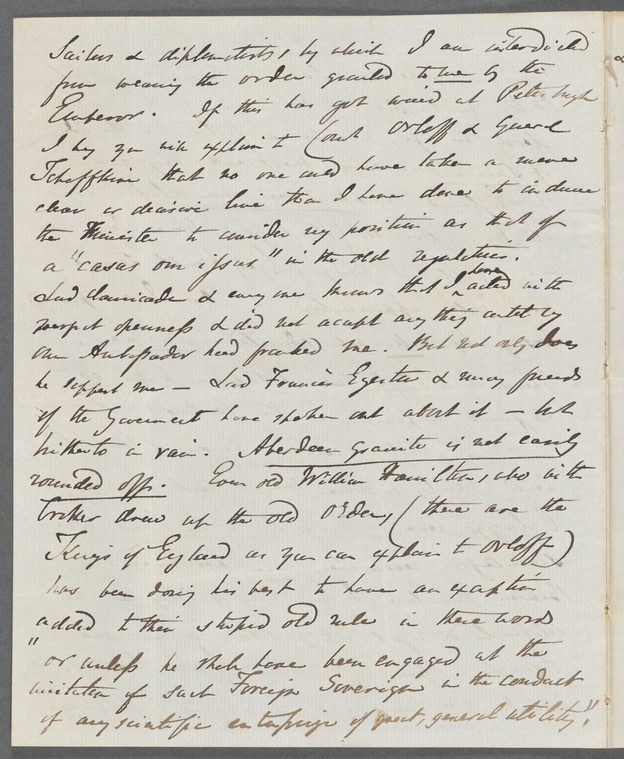 Sailors & diplomatists, by which I am interdicted
from wearing the order granted to me by the
Emperor. If this has got wind at Petersburgh
I beg you will explain to Count Orloff & Guard
Tcheffkine that no one could have taken a more
clear or decisive line than I have done to induce
the Minister to consider my position as that of
a "casus omissus" in the old regulations.
Lord Clanricade & every one knows that I have acted with
perfect openness & did not accept any thing until
our Ambassador had franked me. But not only does
he support me — Lord Francis Egerton & many friends
of the Government have spoken out about it — but
hitherto in vain. Aberdeen granite is not easily
rounded off. Even old William Hamilton, who with
Croker drew up the old Order, (these are the
Kings of England as you can explain to Orloff)
has been doing his best to have an exception
added to their stupid old rule in these words
"or unless he shall have been engaged at the
invitation of such Foreign Sovereign in the conduct
of any scientific enterprise of great, general utility".